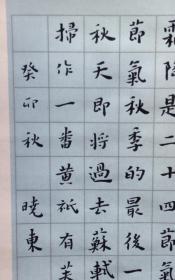 霜降是二十四節
節氣秋季的最後一
秋天即将過去蘇軾
掃作一番黄祇有
癸卯秋 曉東